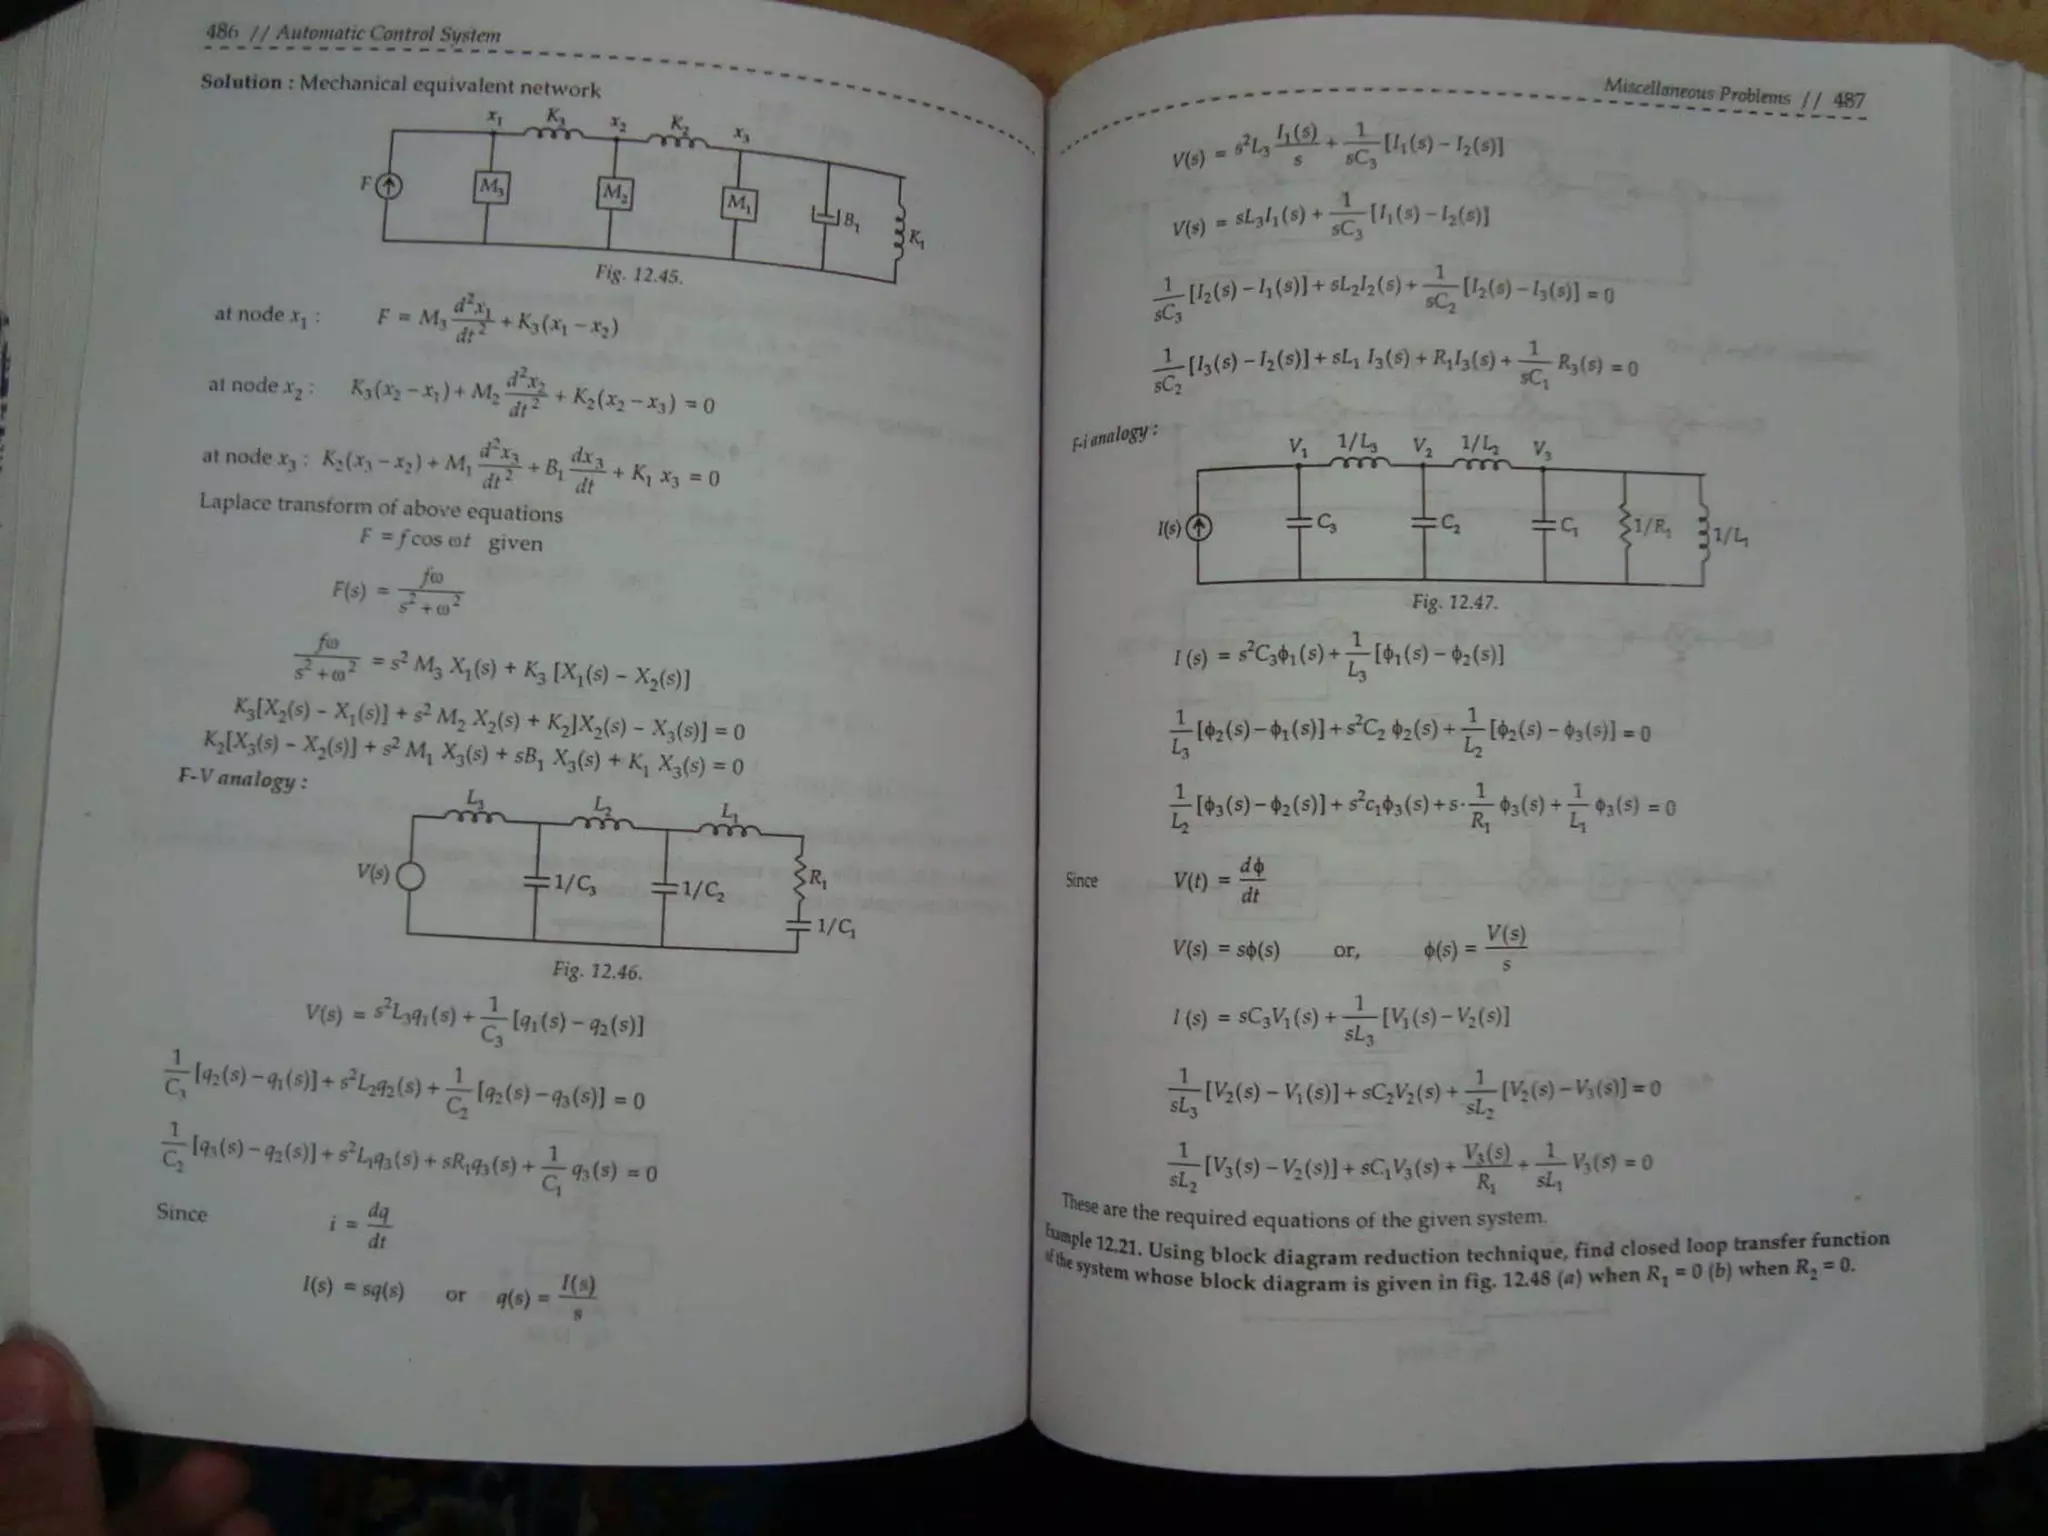 486 // Automatic Control System
Solution : Mechanical equivalent network
x₁ K₃ x₂ K₂ x₃
F M₃ M₂ M₁ B₁ K₁
Fig. 12.45.
at node x₁ : F = M₃ d²x₁/dt² + K₃(x₁ – x₂)
at node x₂ : K₃(x₂ – x₁) + M₂ d²x₂/dt² + K₂(x₂ – x₃) = 0
at node x₃ : K₂(x₃ – x₂) + M₁ d²x₃/dt² + B₁ dx₃/dt + K₁ x₃ = 0
Laplace transform of above equations
F = f cos ωt given
F(s) = fω/s² + ω²
fω/s² + ω² = s² M₃ X₁(s) + K₃ [X₁(s) – X₂(s)]
K₃[X₂(s) – X₁(s)] + s² M₂ X₂(s) + K₂]X₂(s) – X₃(s)] = 0
K₂[X₃(s) – X₂(s)] + s² M₁ X₃(s) + sB₁ X₃(s) + K₁ X₃(s) = 0
F-V analogy :
L₃ L₂ L₁
V(s) 1/C₃ 1/C₂ R₁
1/C₁
Fig. 12.46.
V(s) = s²L₃q₁(s) + 1/C₃ [q₁(s) – q₂(s)]
1/C₃ [q₂(s) – q₁(s)] + s²L₂q₂(s) + 1/C₂ [q₂(s) – q₃(s)] = 0
1/C₂ [q₃(s) – q₂(s)] + s²L₁q₃(s) + sR₁q₃(s) + 1/C₁ q₃(s) = 0
Since i = dq/dt
I(s) = sq(s) or q(s) = I(s)/s
Miscellaneous Problems // 487
V(s) = s²L₃ I₁(s)/s + 1/sC₃ [I₁(s) – I₂(s)]
V(s) = sL₃I₁(s) + 1/sC₃ [I₁(s) – I₂(s)]
1/sC₃ [I₂(s) – I₁(s)] + sL₂I₂(s) + 1/sC₂ [I₂(s) – I₃(s)] = 0
1/sC₂ [I₃(s) – I₂(s)] + sL₁ I₃(s) + R₁I₃(s) + 1/sC₁ R₃(s) = 0
F-i analogy :
V₁ 1/L₃ V₂ 1/L₂ V₃
I(s) C₃ C₂ C₁ 1/R₁ 1/L₁
Fig. 12.47.
I (s) = s²C₃ϕ₁(s) + 1/L₃ [ϕ₁(s) – ϕ₂(s)]
1/L₃ [ϕ₂(s) – ϕ₁(s)] + s²C₂ ϕ₂(s) + 1/L₂ [ϕ₂(s) – ϕ₃(s)] = 0
1/L₂ [ϕ₃(s) – ϕ₂(s)] + s²c₁ϕ₃(s) + s· 1/R₁ ϕ₃(s) + 1/L₁ ϕ₃(s) = 0
Since V(t) = dϕ/dt
V(s) = sϕ(s) or, ϕ(s) = V(s)/s
I (s) = sC₃V₁(s) + 1/sL₃ [V₁(s) – V₂(s)]
1/sL₃ [V₂(s) – V₁(s)] + sC₂V₂(s) + 1/sL₂ [V₂(s) – V₃(s)] = 0
1/sL₂ [V₃(s) – V₂(s)] + sC₁V₃(s) + V₃(s)/R₁ + 1/sL₁ V₃(s) = 0
These are the required equations of the given system.
Example 12.21. Using block diagram reduction technique, find closed loop transfer function
of the system whose block diagram is given in fig. 12.48 (a) when R₁ = 0 (b) when R₂ = 0.